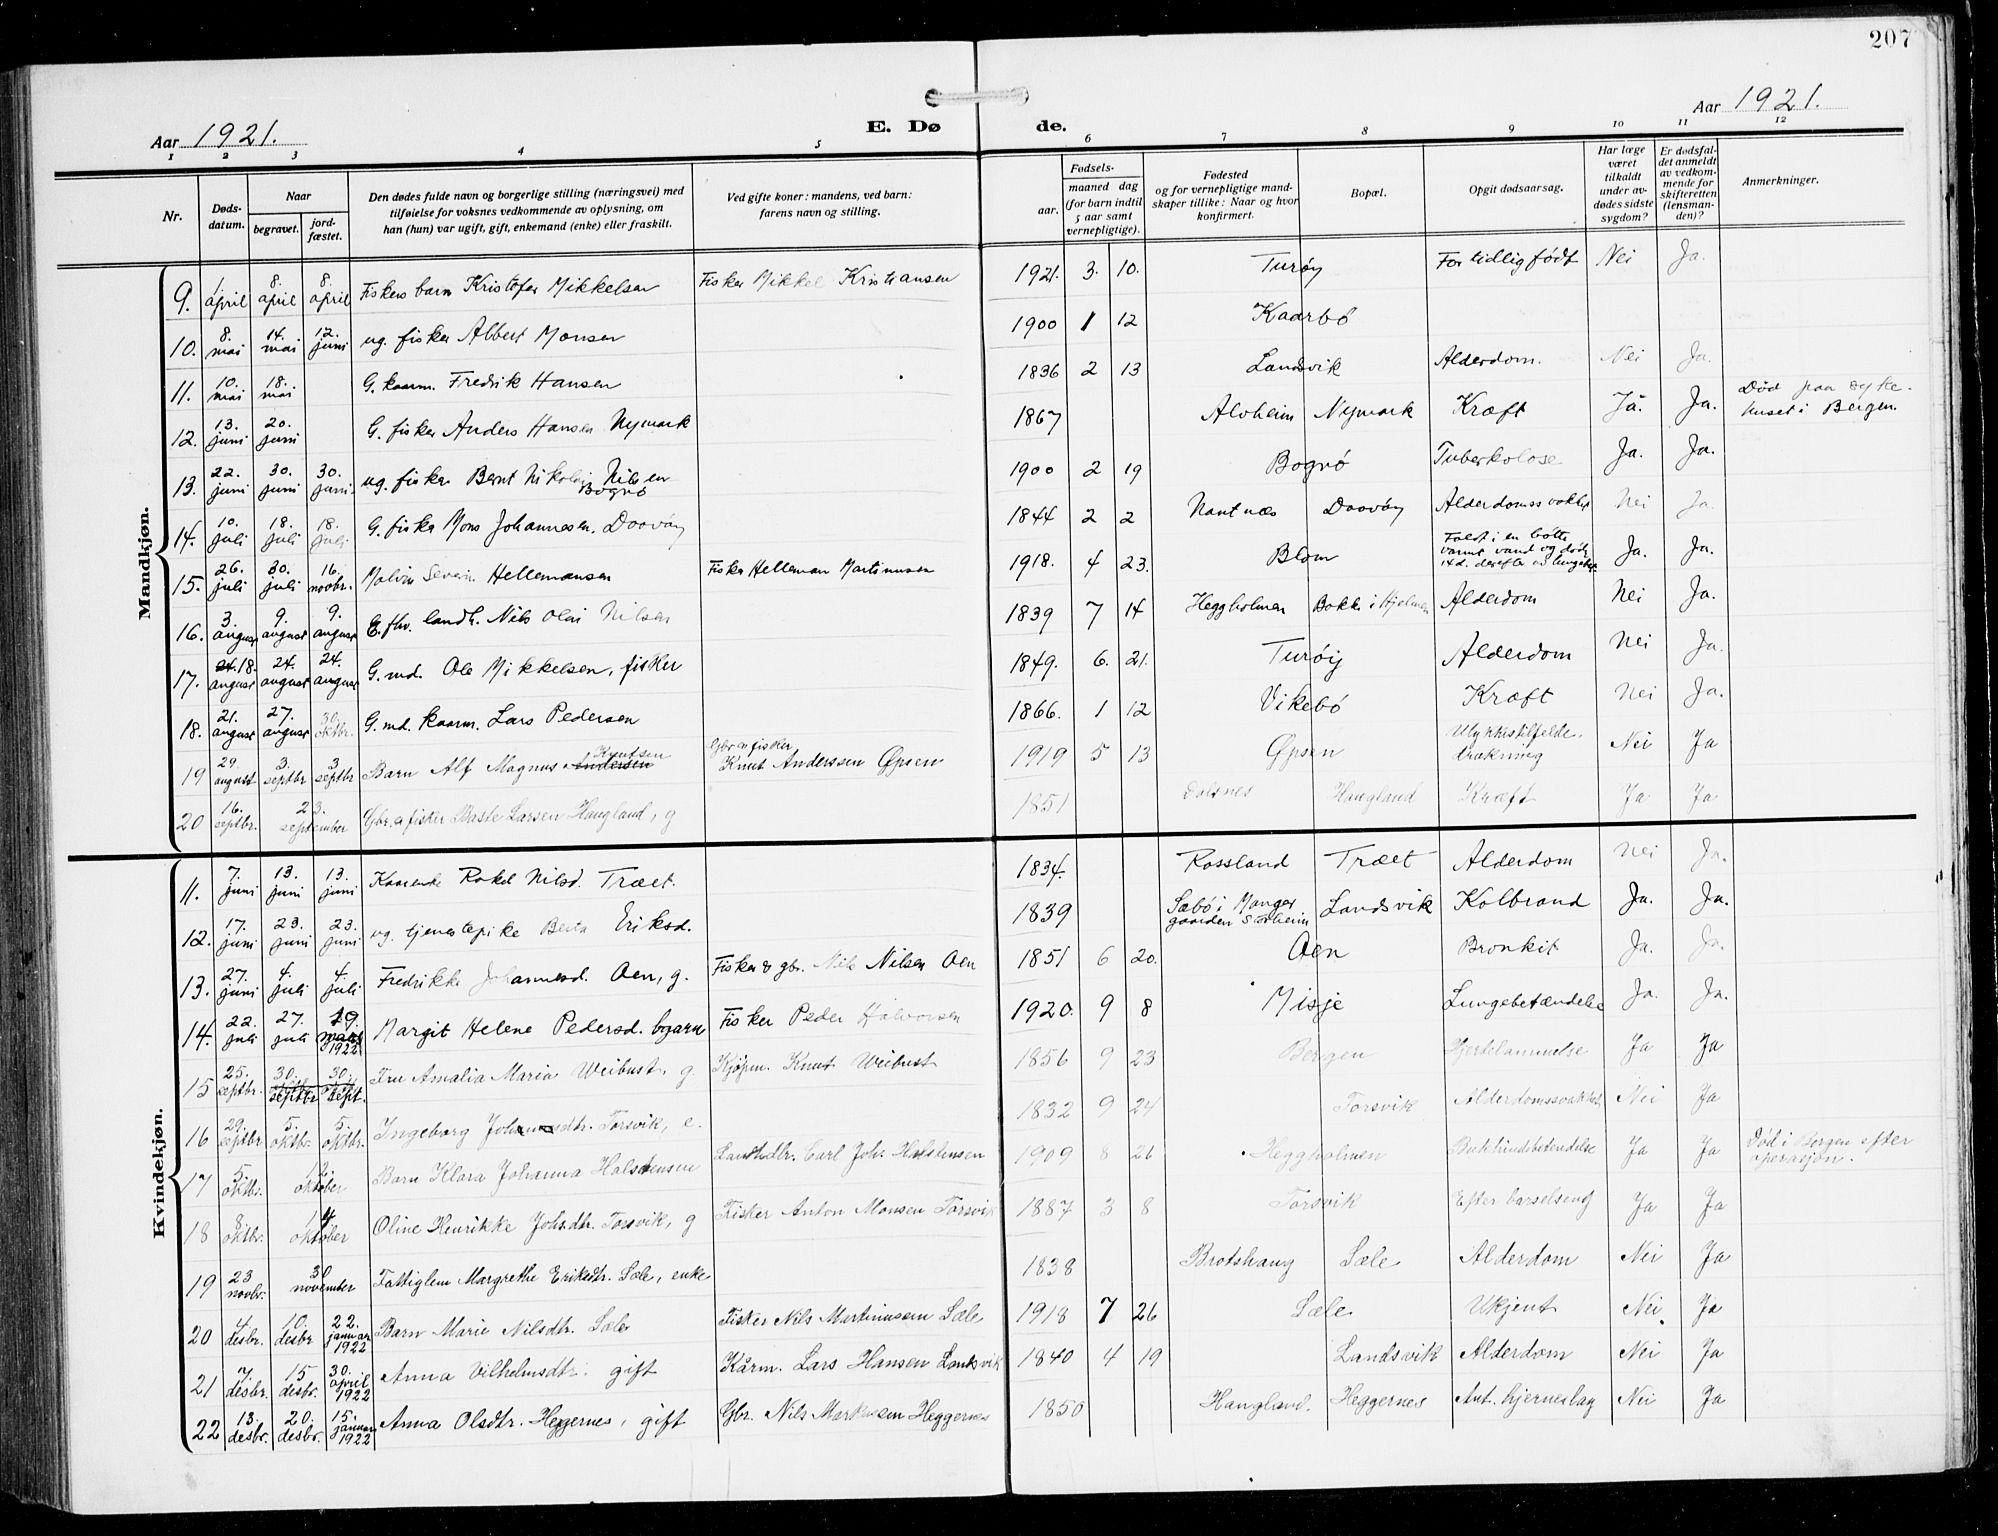 207
Aar 1921.
E. Døde.
Aar 1921.
1 2 3 4 5 6 7 8 9 10 11 12
Nr.
Døds-datum.
Naar
begravet.
jord-fæstet.
Den dødes fulde navn og borgerlige stilling (næringsvei) med
tilføielse for voksnes vedkommende av oplysning, om
han (hun) var ugift, gift, enkemand (enke) eller fraskilt.
Ved gifte koner: mandens, ved barn:
farens navn og stilling.
Fødsels-
aar.
maaned dag
(for barn indtil
5 aar samt
vernepligtige).
Fødested
og for vernepligtige mand-
skaper tillike: Naar og hvor
konfirmert.
Bopæl.
Opgit dødsaarsag.
Har læge
været
tilkaldt
under av-
dødes sidste
sygdom?
Er dødsfal-
det anmeldt
av vedkom-
mende for
skifteretten
(lensman-
den)?
Anmerkninger.
Mandkjøn.
9. 1. april 8. april 8. april Fiskers barn Kristofer Mikkelsen Fisker Mikkel Kristiansen 1921. 3. 10. Turøy For tidlig født Nei Ja.
10. 8. mai 14. mai 12. juni ug. fisker Albert Monsen 1900 1 12 Kaarbø
11. 10. mai 18. mai G. kaarm. Fredrik Hansen 1836 2 13 Landsvik Alderdom. Nei Ja.
12. 13. juni 20. juni G. fisker Anders Hansen Nymark 1867 Alvheim Nymark Kræft Ja. Ja. Død paa syke-
huset i Bergen.
13. 22. juni 30. juni 30. juni ug. fisker Bernt Nikolai Nilsen
Bognø 1900 2 19 Bognø Tuberkolose Ja. Ja.
14. 10. juli 18. juli 18. juli G. fisker Mons Johannesen. Daavøy 1844 2 2 Nautnæs Daavøy Alderdomssvakhet Nei Ja.
15. 26. juli 30. juli 16. novbr. Malvin Severin Hellemansen Fisker Helleman Martinusen 1918. 4 23. Blom Faldt i en bøtte
varmt vand og døde
14 d. derefter av Ja. Ja.
16. 3. august 9. august 9. august E. fhv. landh. Nils Olai Nilsen 1839 7 14 Heggholmen Bakk i Hjelmen Alderdom Nei Ja.
17. 24. 18. august 24. august 24. august G. md. Ole Mikkelsen, fisker 1849. 6. 21. Turøy Alderdom Nei Ja.
18. 21. august 27. august 30. oktbr. G. md. kaarm. Lars Pedersen 1866. 1 12 Vikebø Kræft Nei Ja.
19 29. august 3. septbr 3 septbr Barn Alf Magnus Andersen Knutsen Gbr. og fisker
Knut Anderssen Øpsen 1919 5 13 Øpsen Ulykkestilfelde.
drukning Nei Ja
20 16. septbr. 23. september Gbr. og fisker Baste Larsen Haugland, g 1851 Dalsnes Haugland Kræft Ja Ja
Kvindekjøn.
11. 7. juni 13. juni 13. juni Kaarenke Rakel Nilsd. Træet. 1834. Rossland Træet Alderdom Nei Ja.
12. 17. juni 23. juni 23. juni ug. tjenestepike Berta Eriksd. 1839 Sæbø i Manger
gaarden Storheim Landsvik Kolbrand Ja. Ja.
13. 27. juni 4. juli 4. juli Fredrikke Johannesd. Aen, g. Fisker & gbr. Nils Nilsen Aen 1851 6 20. Aen Bronkit Ja. Ja.
14. 22. juli 27. juli 19. mars 1922. Margit Helene Pedersd. barn Fisker Peder Halvorsen 1920. 9 8 Misje Lungebetændelse Ja. Ja.
15 25. septbr. 30. septbr 30. sept. Fru Amalia Maria Weibust. g. Kjøpm. Knut Weibust 1856 9 23 Bergen Hjertelammelse Ja Ja
16 29. septbr 5. oktbr. 5. oktbr. Ingeborg Johannesdtr. Torsvik, e. 1832 9 24 Torsvik Alderdomssvakhet Nei Ja
17 5. oktbr. 12. oktober Barn Klara Johanna Halstensen Landhdlr. Carl Joh. Halstensen 1909 8 26 Heggholmen Bukhindebetendelse Ja Ja Død i Bergen efter
operasjon.
18 8. oktbr. 14 oktober Oline Henrikke Johsdtr. Torsvik, g Fisker Anton Monsen Torsvik 1887 3 8 Torsvik Efter barselseng Ja Ja
19 23 novbr. 30 november Fattiglem Margrethe Eriksdtr. Sæle, enke 1838 Brotshaug Sæle Alderdom Nei Ja
20 4. desbr. 10. desbr 22. januar 1922 Barn Marie Nilsdtr. Sæle Fisker Nils Martinussen Sæle 1918 7 26 Sæle Ukjent Nei. Ja
21 7. desbr. 15 desbr. 30. april 1922 Anna Vilhelmsdtr. gift Kårm. Lars Hansen Landsvik 1840 4 19 Landsvik Alderdom Nei Ja
22 13. desbr. 20. desbr. 15. januar 1922 Anna Olsdtr. Heggernes, gift Gbr. Nils Markussen Heggernes 1850 Haugland. Heggernes Ant. hjerneslag Nei Ja